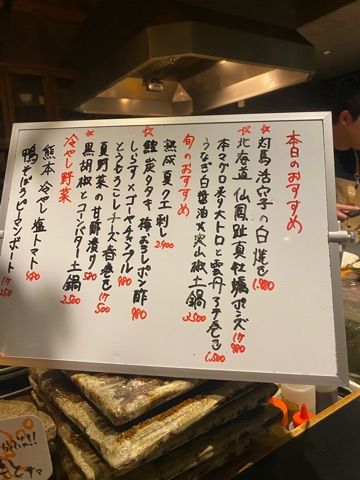 本日のおすすめ
☆対馬活穴子の白焼き 1.980
☆北海道 仙鳳趾真牡蠣ポン酢 1ヶ 980
本マグロ炙り大トロと雲丹の手巻き 1.500
うなぎ白醤油×実山椒土鍋 3500
旬のおすすめ
熟成夏クエ刺し 2.400
☆鰹炭タタキ 梅おろしポン酢 980
しらす×ゴーヤチャンプル 980
とうもろこしチーズ春巻き 1ヶ 500
夏野菜の甘酢漬り 580
☆黒胡椒とコーンバター土鍋 2.500
冷やし野菜
熊本 冷やし塩トマト 480
鴨そぼろピーマンボート 1ヶ 250